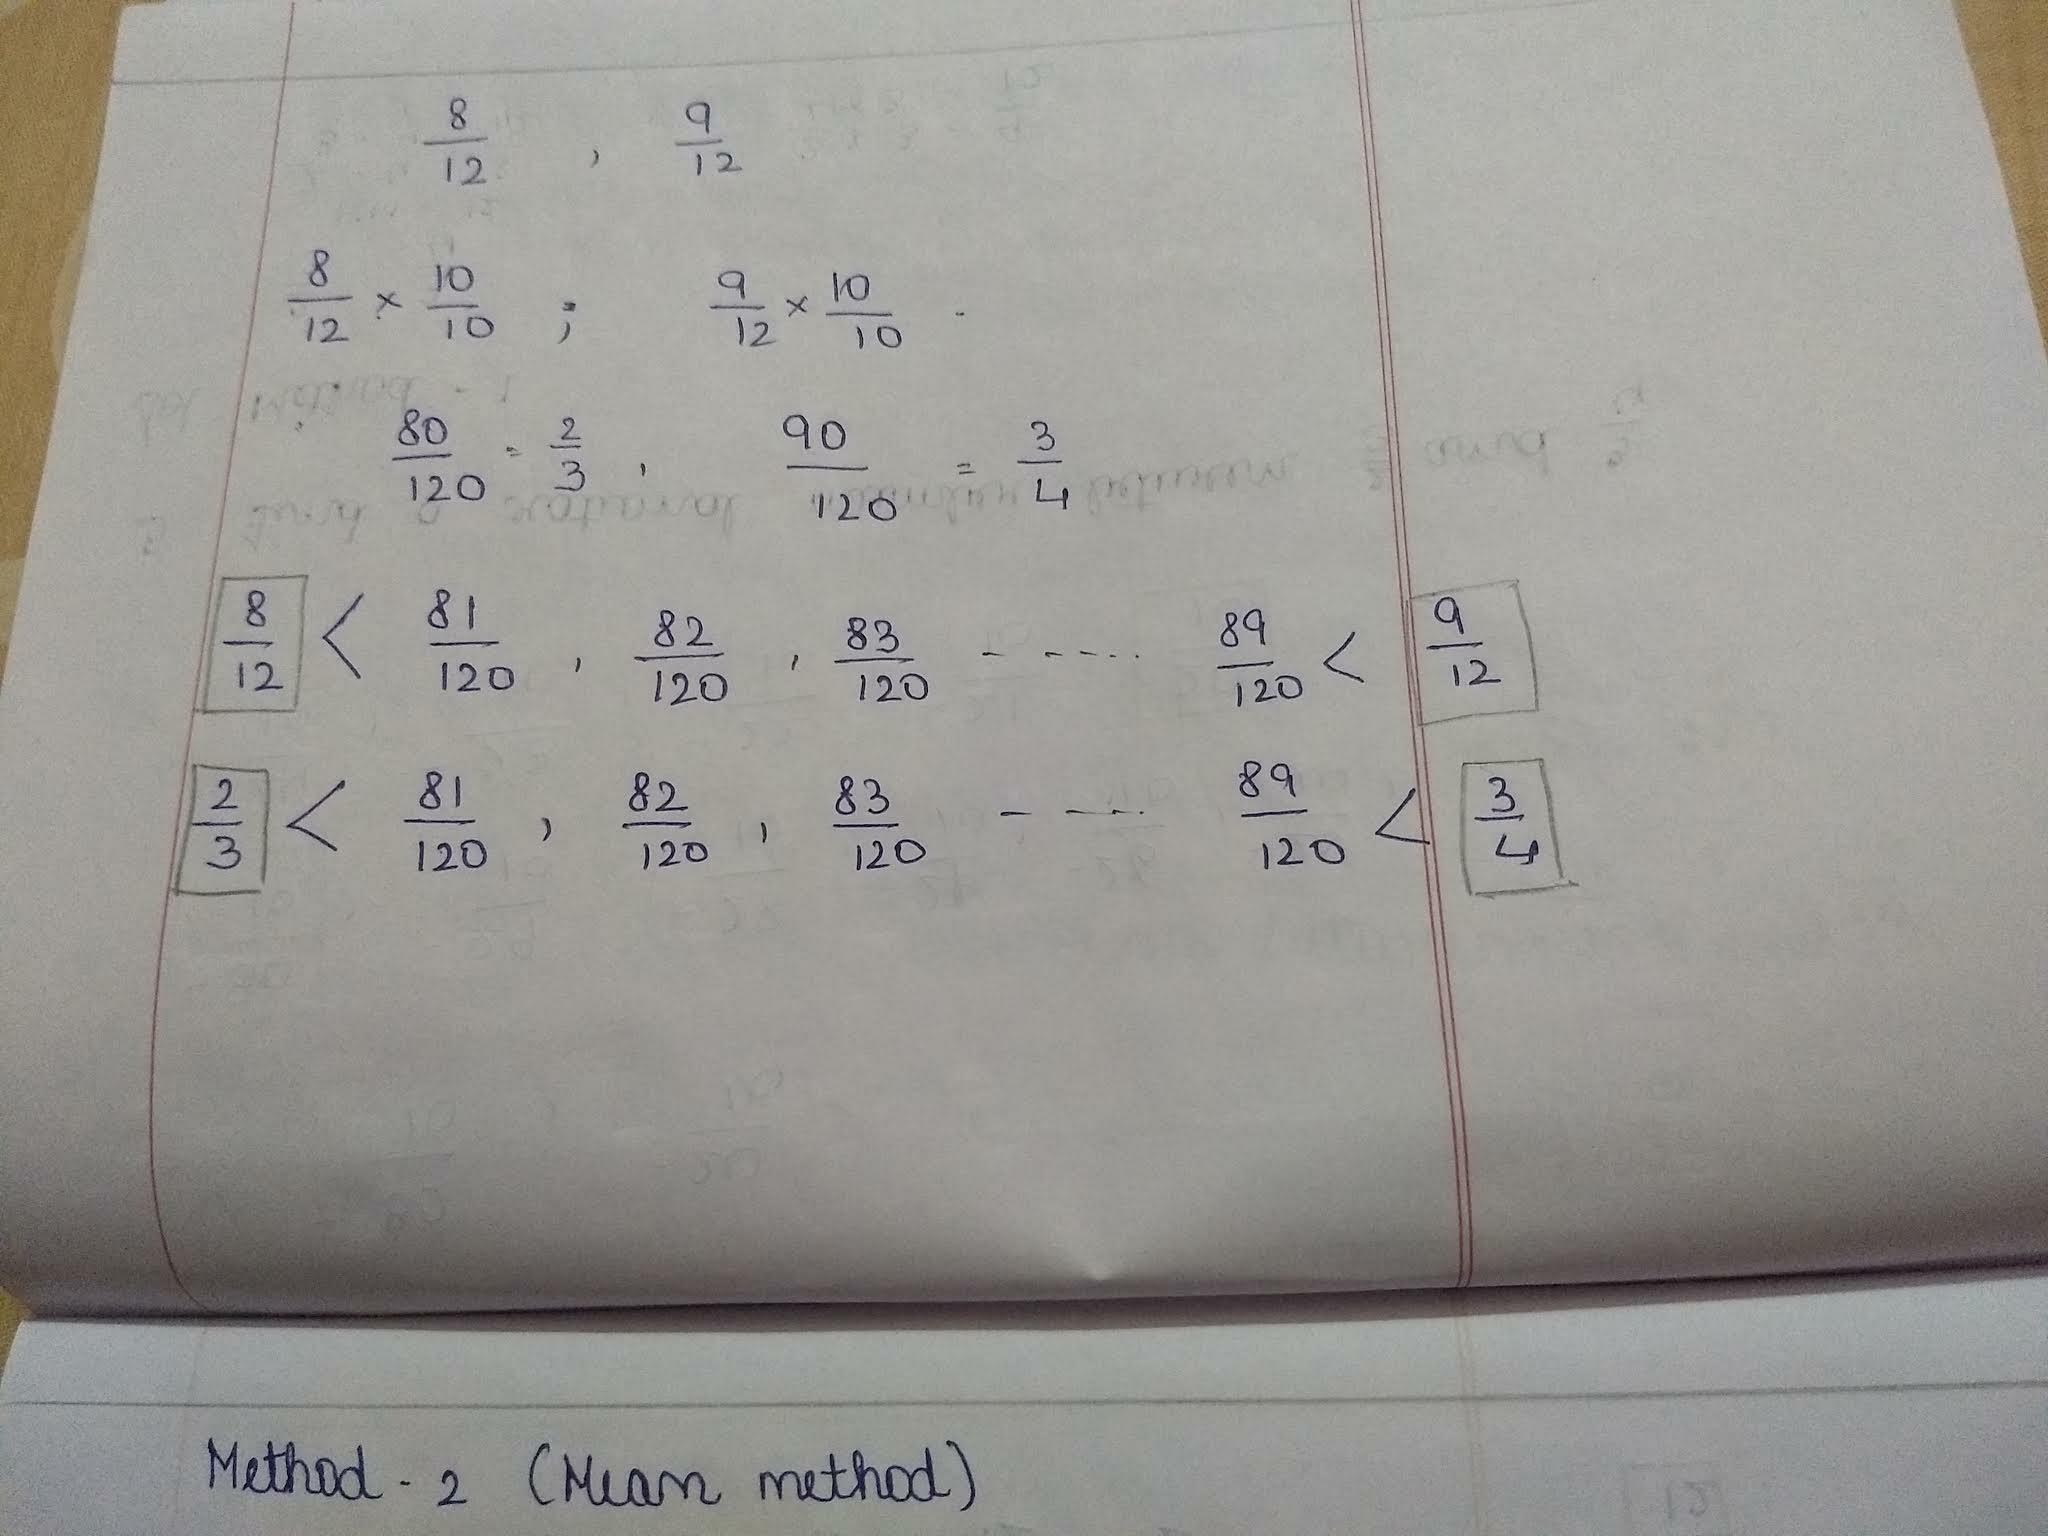 8/12 , 9/12
8/12 × 10/10 ; 9/12 × 10/10 .
80/120 = 2/3 , 90/120 = 3/4
8/12 < 81/120 , 82/120 , 83/120 - - ---.. 89/120 < 9/12
2/3 < 81/120 , 82/120 , 83/120 - - ---.. 89/120 < 3/4
Method - 2 (Mean method)